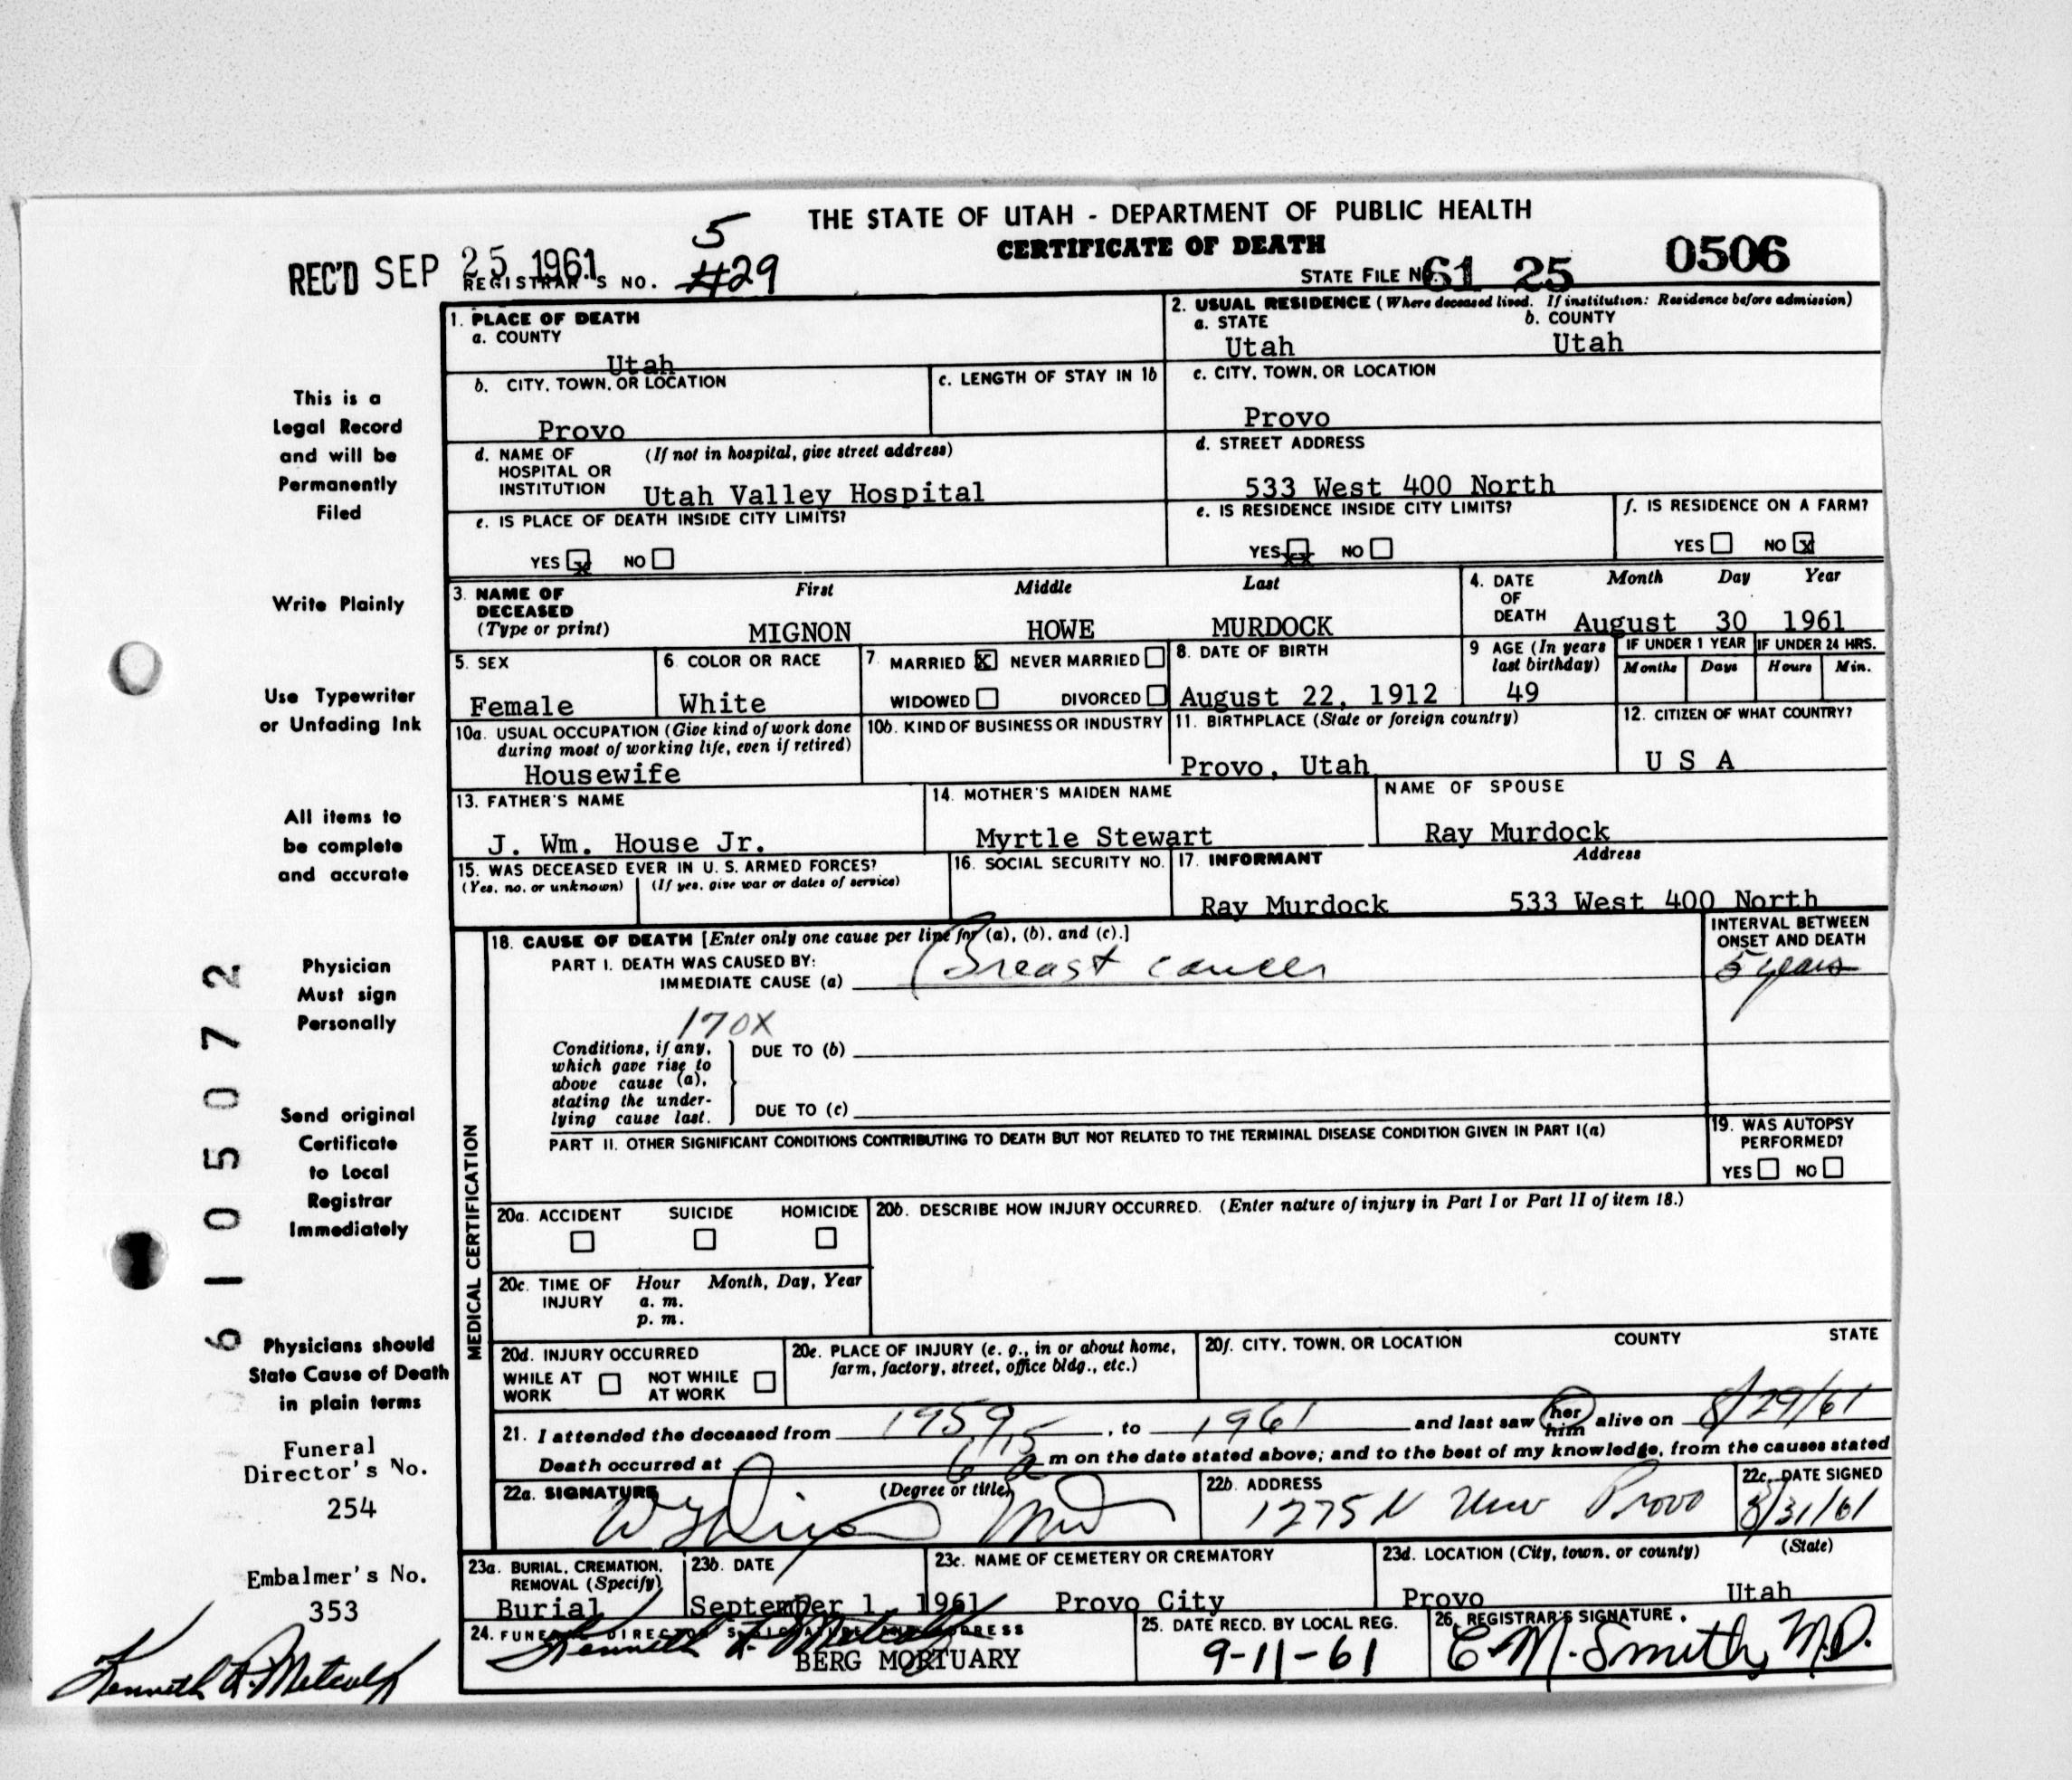 THE STATE OF UTAH - DEPARTMENT OF PUBLIC HEALTH
CERTIFICATE OF DEATH
REC'D SEP 25 1961
REGISTRAR'S NO. 5 #29
STATE FILE NO. 61 25 0506
This is a
Legal Record
and will be
Permanently
Filed
Write Plainly
Use Typewriter
or Unfading Ink
All items to
be complete
and accurate
Physician
Must sign
Personally
Send original
Certificate
to Local
Registrar
Immediately
Physicians should
State Cause of Death
in plain terms
Funeral
Director's No.
254
Embalmer's No.
353
Kenneth R. Metcalf
6105072
1. PLACE OF DEATH
a. COUNTY
Utah
b. CITY, TOWN, OR LOCATION
Provo
c. LENGTH OF STAY IN 1b
d. NAME OF HOSPITAL OR INSTITUTION (If not in hospital, give street address)
Utah Valley Hospital
e. IS PLACE OF DEATH INSIDE CITY LIMITS?
YES X NO
2. USUAL RESIDENCE (Where deceased lived. If institution: Residence before admission)
a. STATE
Utah
b. COUNTY
Utah
c. CITY, TOWN, OR LOCATION
Provo
d. STREET ADDRESS
533 West 400 North
e. IS RESIDENCE INSIDE CITY LIMITS?
YES XX NO
f. IS RESIDENCE ON A FARM?
YES NO X
3. NAME OF DECEASED (Type or print)
First Middle Last
MIGNON HOWE MURDOCK
4. DATE OF DEATH
Month Day Year
August 30 1961
5. SEX
Female
6. COLOR OR RACE
White
7. MARRIED X NEVER MARRIED
WIDOWED DIVORCED
8. DATE OF BIRTH
August 22, 1912
9 AGE (In years last birthday)
49
IF UNDER 1 YEAR
Months Days
IF UNDER 24 HRS.
Hours Min.
10a. USUAL OCCUPATION (Give kind of work done during most of working life, even if retired)
Housewife
10b. KIND OF BUSINESS OR INDUSTRY
11. BIRTHPLACE (State or foreign country)
Provo, Utah
12. CITIZEN OF WHAT COUNTRY?
U S A
13. FATHER'S NAME
J. Wm. House Jr.
14. MOTHER'S MAIDEN NAME
Myrtle Stewart
NAME OF SPOUSE
Ray Murdock
15. WAS DECEASED EVER IN U. S. ARMED FORCES?
(Yes, no, or unknown) (If yes, give war or dates of service)
16. SOCIAL SECURITY NO.
17. INFORMANT Address
Ray Murdock 533 West 400 North
MEDICAL CERTIFICATION
18. CAUSE OF DEATH [Enter only one cause per line for (a), (b), and (c).]
PART I. DEATH WAS CAUSED BY:
IMMEDIATE CAUSE (a) Breast cancer
INTERVAL BETWEEN ONSET AND DEATH
5 years
170X
Conditions, if any, which gave rise to above cause (a), stating the underlying cause last.
DUE TO (b)
DUE TO (c)
PART II. OTHER SIGNIFICANT CONDITIONS CONTRIBUTING TO DEATH BUT NOT RELATED TO THE TERMINAL DISEASE CONDITION GIVEN IN PART I(a)
19. WAS AUTOPSY PERFORMED?
YES NO
20a. ACCIDENT SUICIDE HOMICIDE
20b. DESCRIBE HOW INJURY OCCURRED. (Enter nature of injury in Part I or Part II of item 18.)
20c. TIME OF INJURY Hour Month, Day, Year
a. m.
p. m.
20d. INJURY OCCURRED
WHILE AT WORK NOT WHILE AT WORK
20e. PLACE OF INJURY (e. g., in or about home, farm, factory, street, office bldg., etc.)
20f. CITY, TOWN, OR LOCATION COUNTY STATE
21. I attended the deceased from 1959, to 1961 and last saw her him alive on 8/29/61
Death occurred at 6:15 a m on the date stated above; and to the best of my knowledge, from the causes stated
22a. SIGNATURE (Degree or title)
MD
22b. ADDRESS
1275 N Univ Provo
22c. DATE SIGNED
8/31/61
23a. BURIAL, CREMATION, REMOVAL (Specify)
Burial
23b. DATE
September 1, 1961
23c. NAME OF CEMETERY OR CREMATORY
Provo City
23d. LOCATION (City, town, or county) (State)
Provo Utah
24. FUNERAL DIRECTOR'S SIGNATURE AND ADDRESS
Kenneth R. Metcalf
BERG MORTUARY
25. DATE RECD. BY LOCAL REG.
9-11-61
26. REGISTRAR'S SIGNATURE
C. M. Smith, M.D.